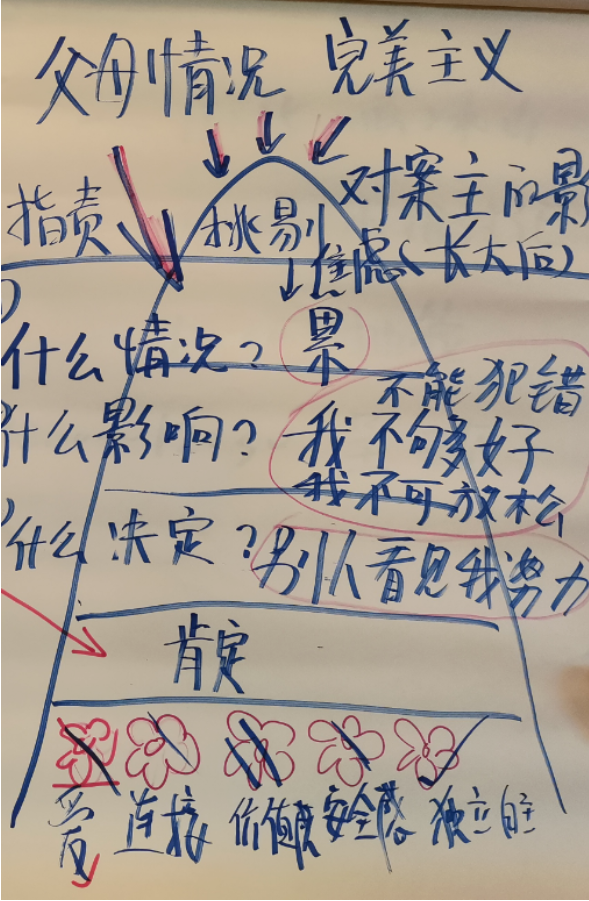 父母情况 完美主义
指责 挑剔 对案主的影
焦虑(长大后)
什么情况? 累
不能犯错
什么影响? 我不够好
我不可放松
什么决定? 别人看见我努力
肯定
爱 连接 价值 安全感 独立自主